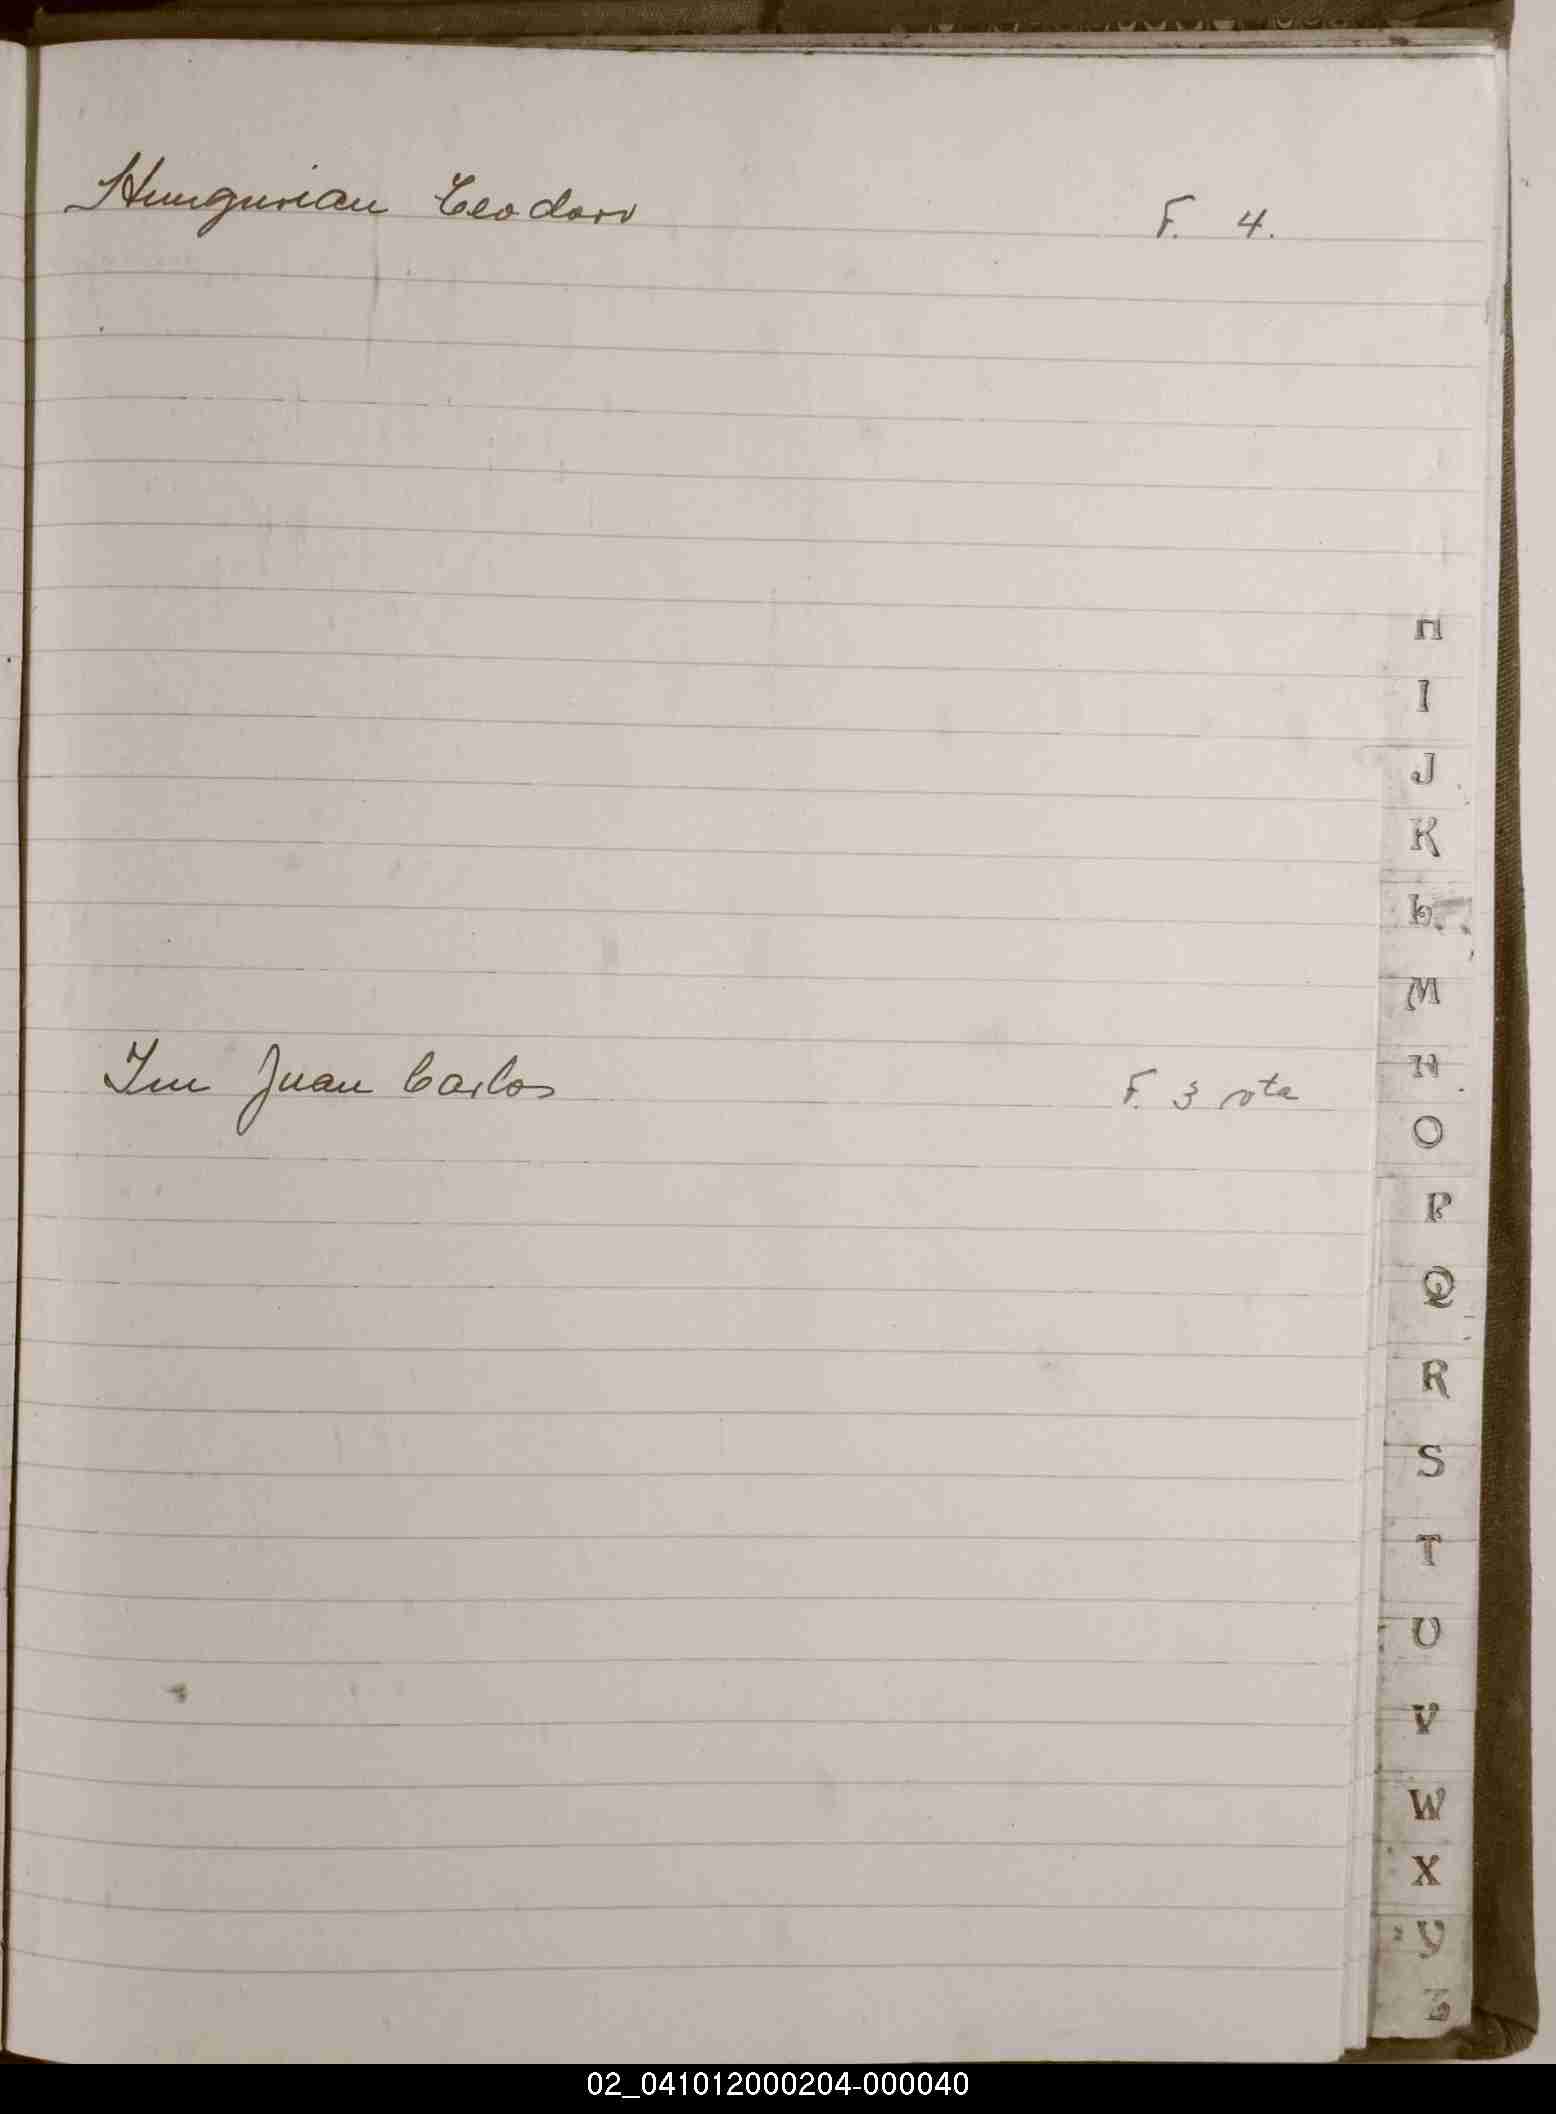 Hungurian Teodoro F. 4.
H
I
J
K
L
M
N
O
P
Q
R
S
T
U
V
W
X
Y
Z
Im Juan Carlos F. 3 vta
02_041012000204-000040